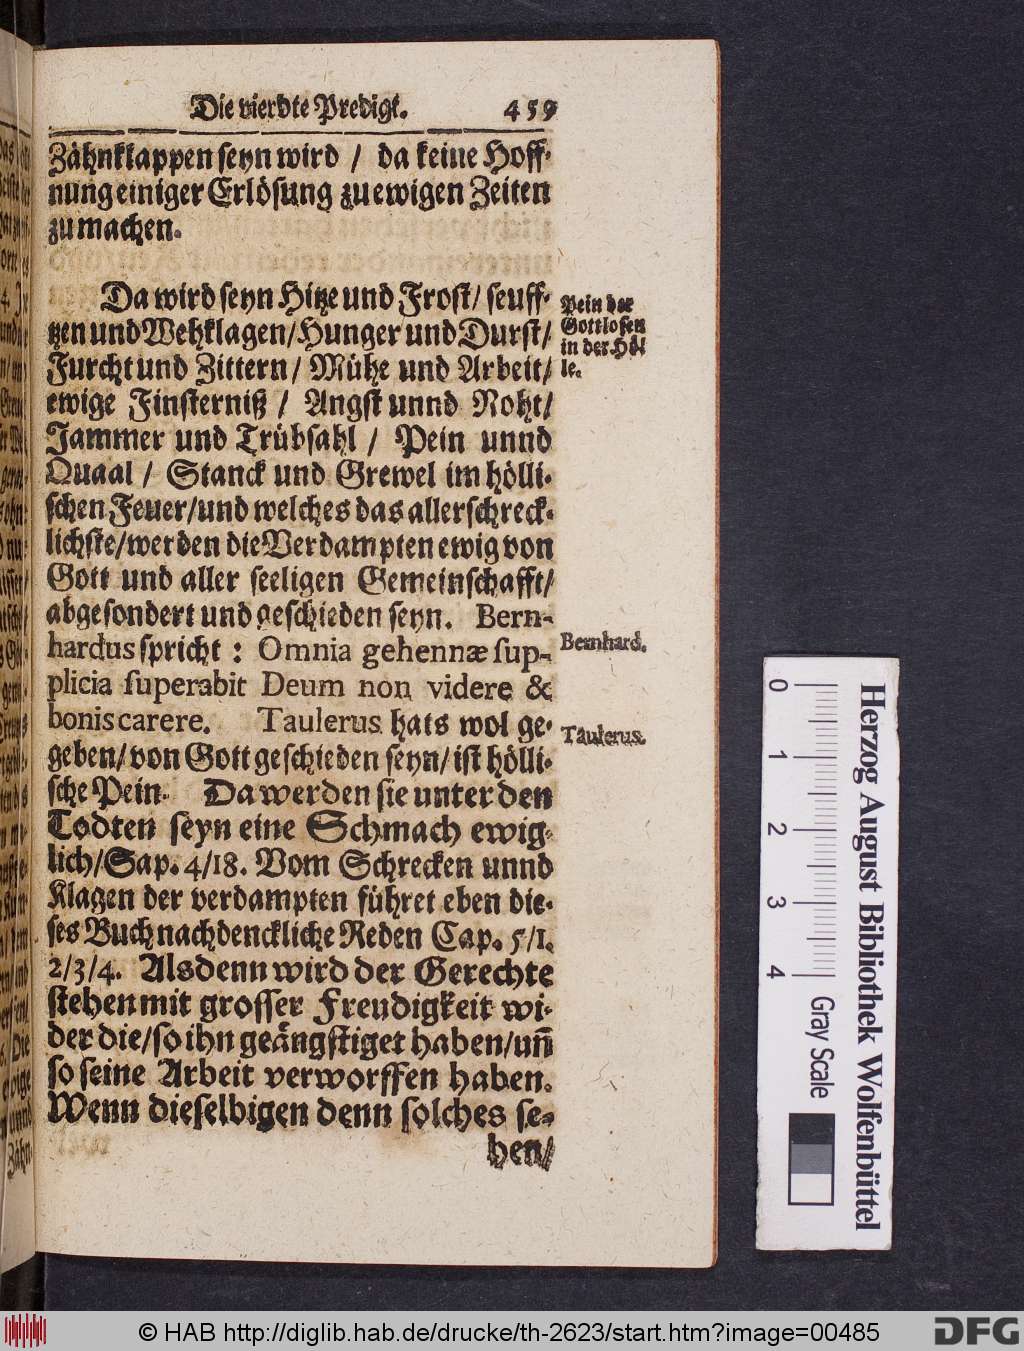 Die vierdte Predigt. 459
Zähnklappen seyn wird / da keine Hoff-
nung einiger Erlösung zu ewigen Zeiten
zu machen.
Da wird seyn Hitze und Frost/ seuff-
tzen und Wehklagen/Hunger und Durst/
Furcht und Zittern/ Mühe und Arbeit/
ewige Finsterniß / Angst unnd Noht/
Jammer und Trübsahl / Pein unnd
Quaal / Stanck und Grewel im hölli-
schen Feuer/und welches das allerschreck-
lichste/werden die Verdampten ewig von
Gott und aller seeligen Gemeinschafft/
abgesondert und geschieden seyn. Bern-
hardus spricht : Omnia gehennæ sup-
plicia superabit Deum non videre &
bonis carere. Taulerus hats wol ge-
geben/von Gott geschieden seyn/ist hölli-
sche Pein. Da werden sie unter den
Todten seyn eine Schmach ewig-
lich/Sap. 4/18. Vom Schrecken unnd
Klagen der verdampten führet eben die-
ses Buch nachdenckliche Reden Cap. 5/1.
2/3/4. Alsdenn wird der Gerechte
stehen mit grosser Freudigkeit wi-
der die/so ihn geängstiget haben/uñ
so seine Arbeit verworffen haben.
Wenn dieselbigen denn solches se-
hen/
Pein der
Gottlosen
in der Höl
le.
Bernhard.
Taulerus.
Herzog August Bibliothek Wolfenbüttel
0 1 2 3 4 Gray Scale
© HAB http://diglib.hab.de/drucke/th-2623/start.htm?image=00485
DFG